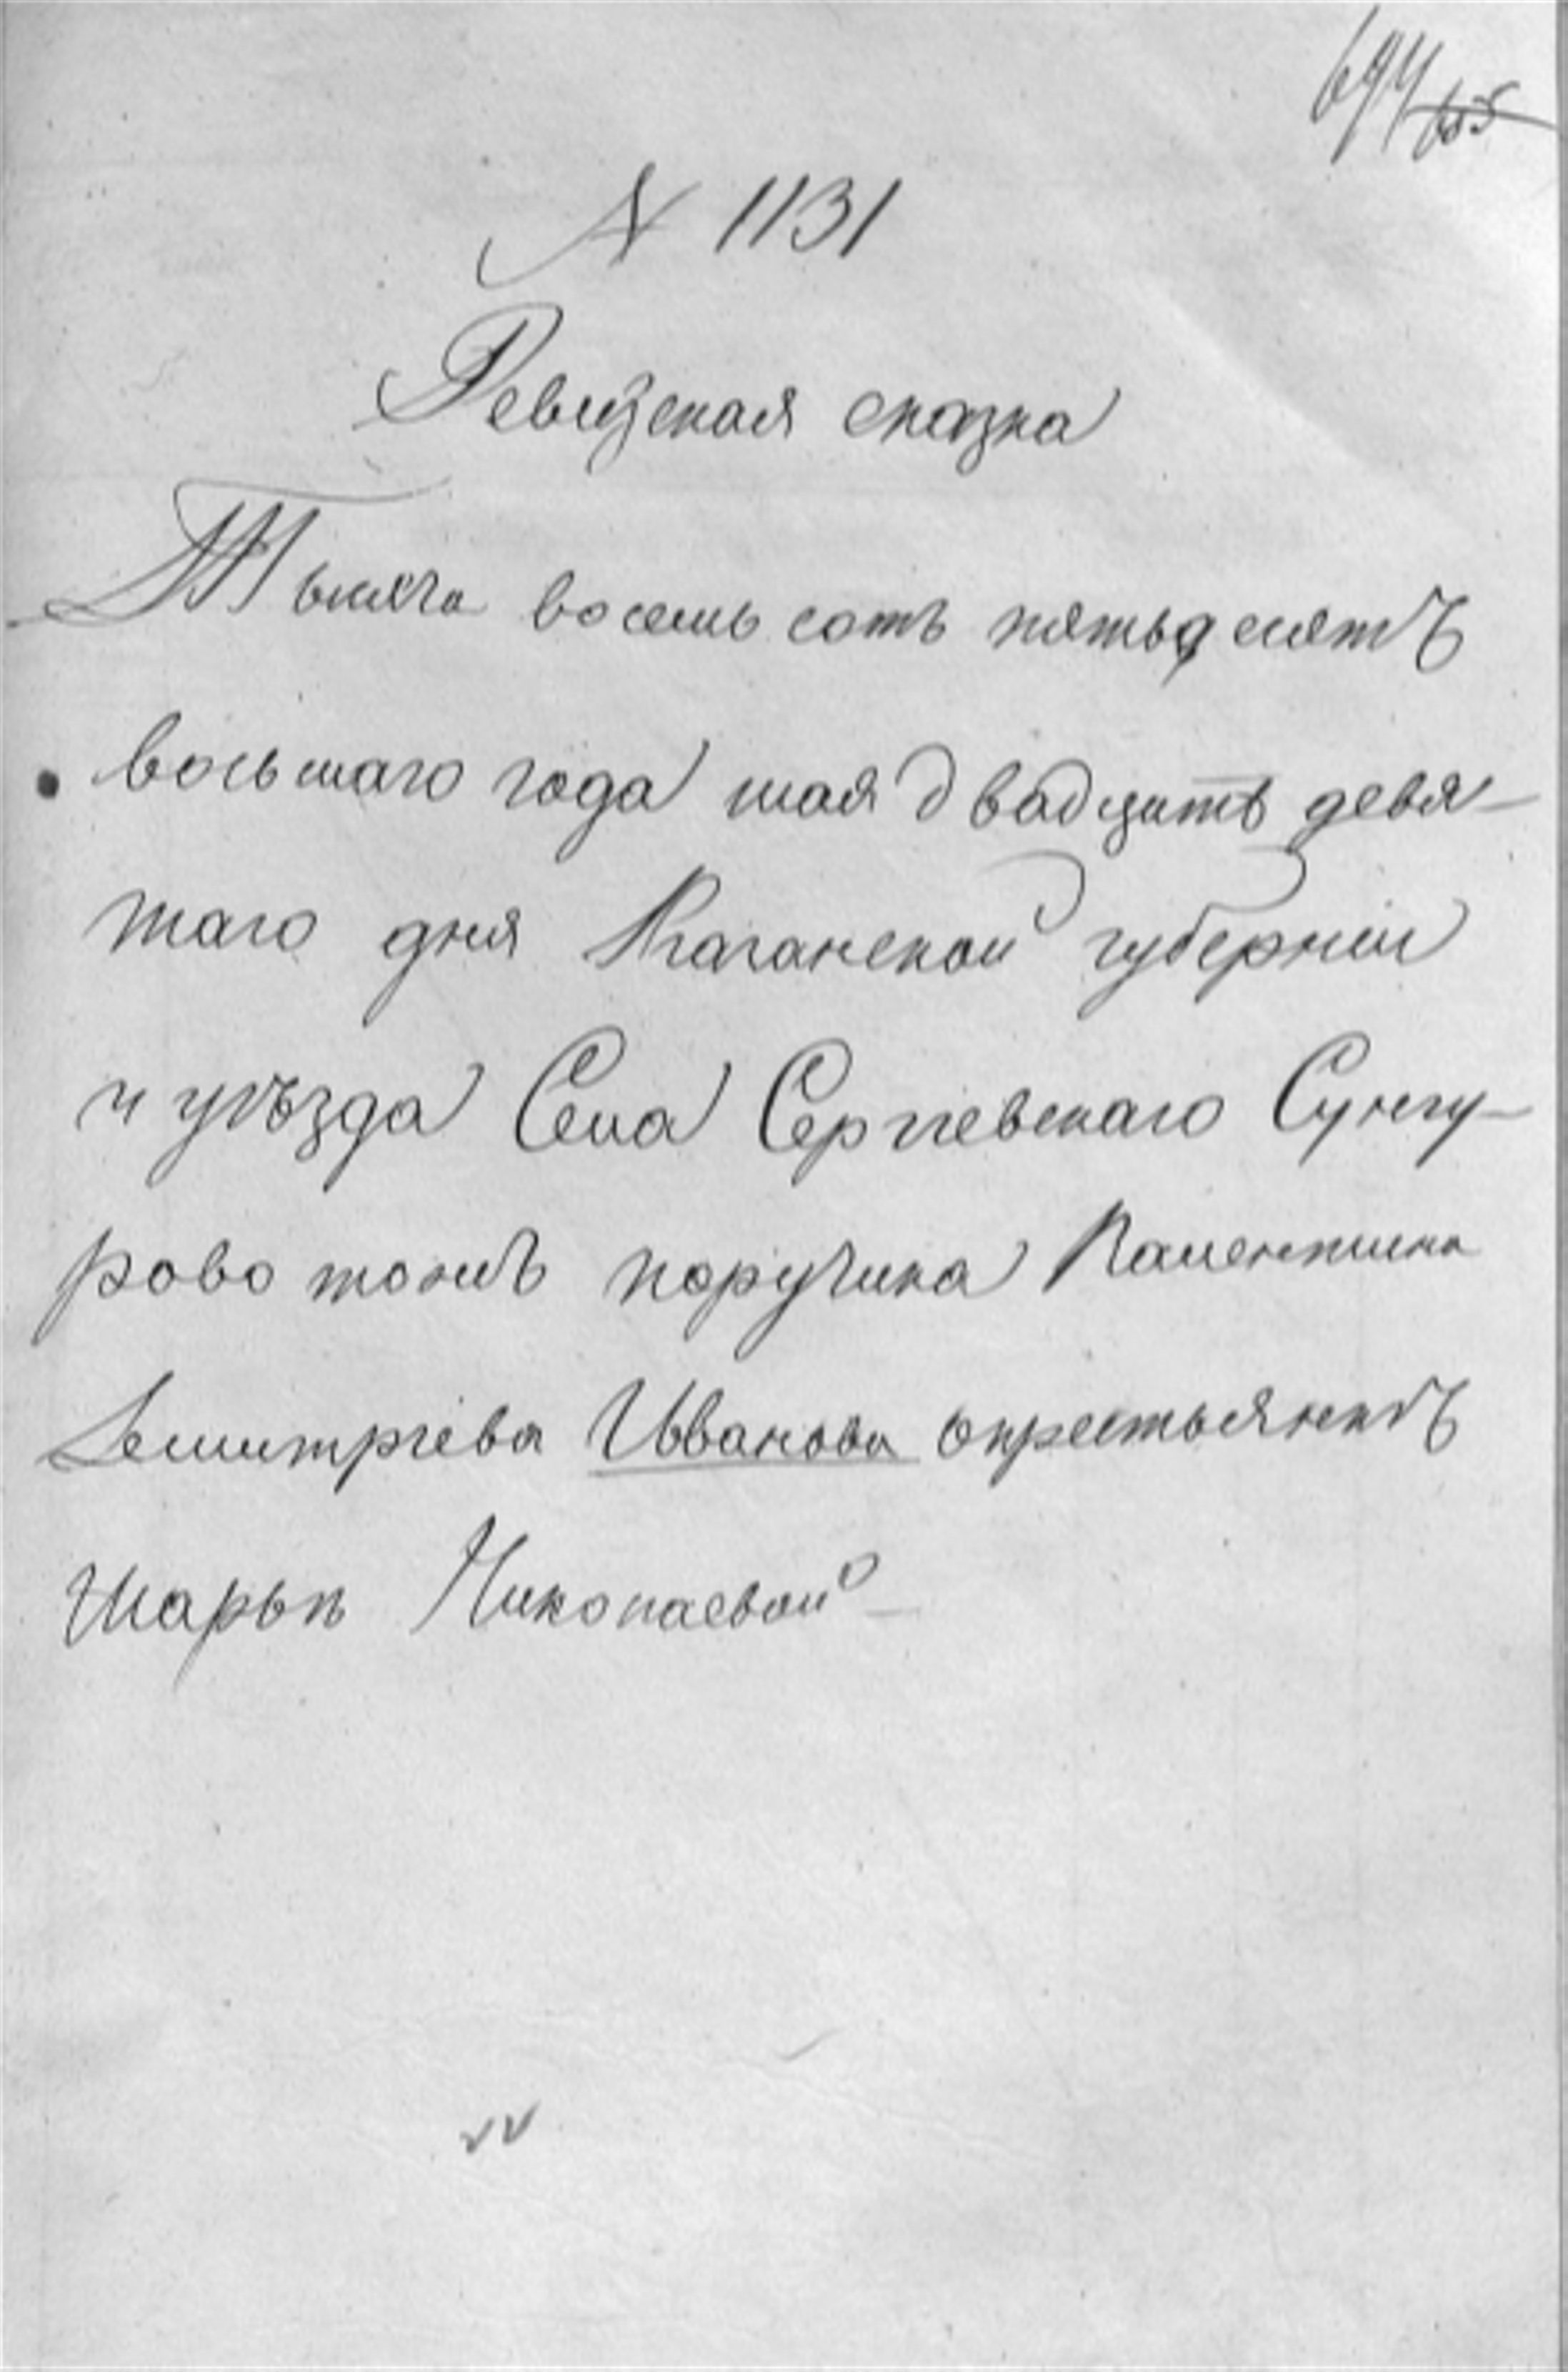 694 655
№ 1131
Ревизская сказка
Тысяча восемь сотъ пятьдесятъ
восьмаго года мая двадцать девя-
таго дня Казанской губерніи
и уѣзда Села Сергіевскаго Сунгу-
рово тожъ поручика
Демитріева Иванова о крестьянкѣ
Марьѣ Николаевой